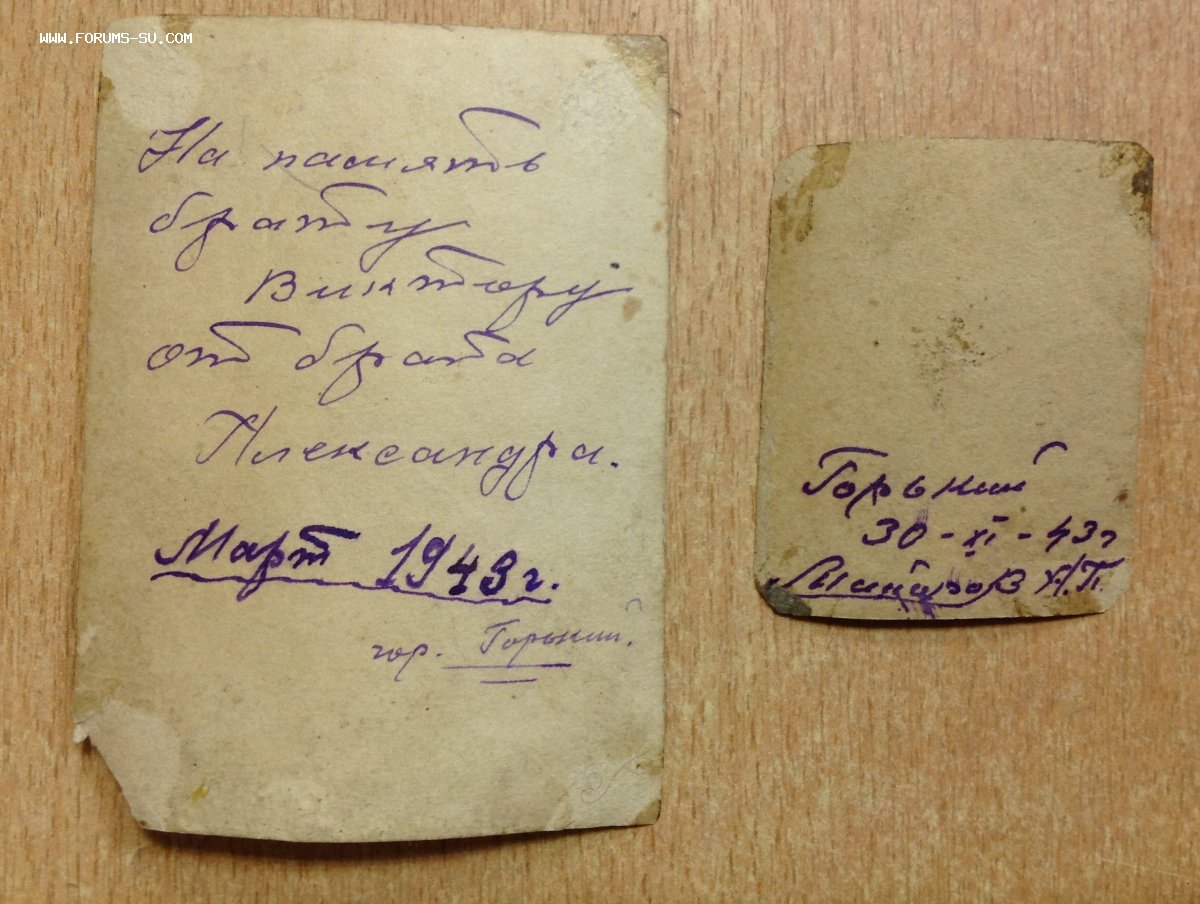 WWW.FORUMS-SU.COM
На память
брату
Виктору
от брата
Александра.
Март 1943 г.
гор. Горький.
Горький
30-XI-43г
А.П.